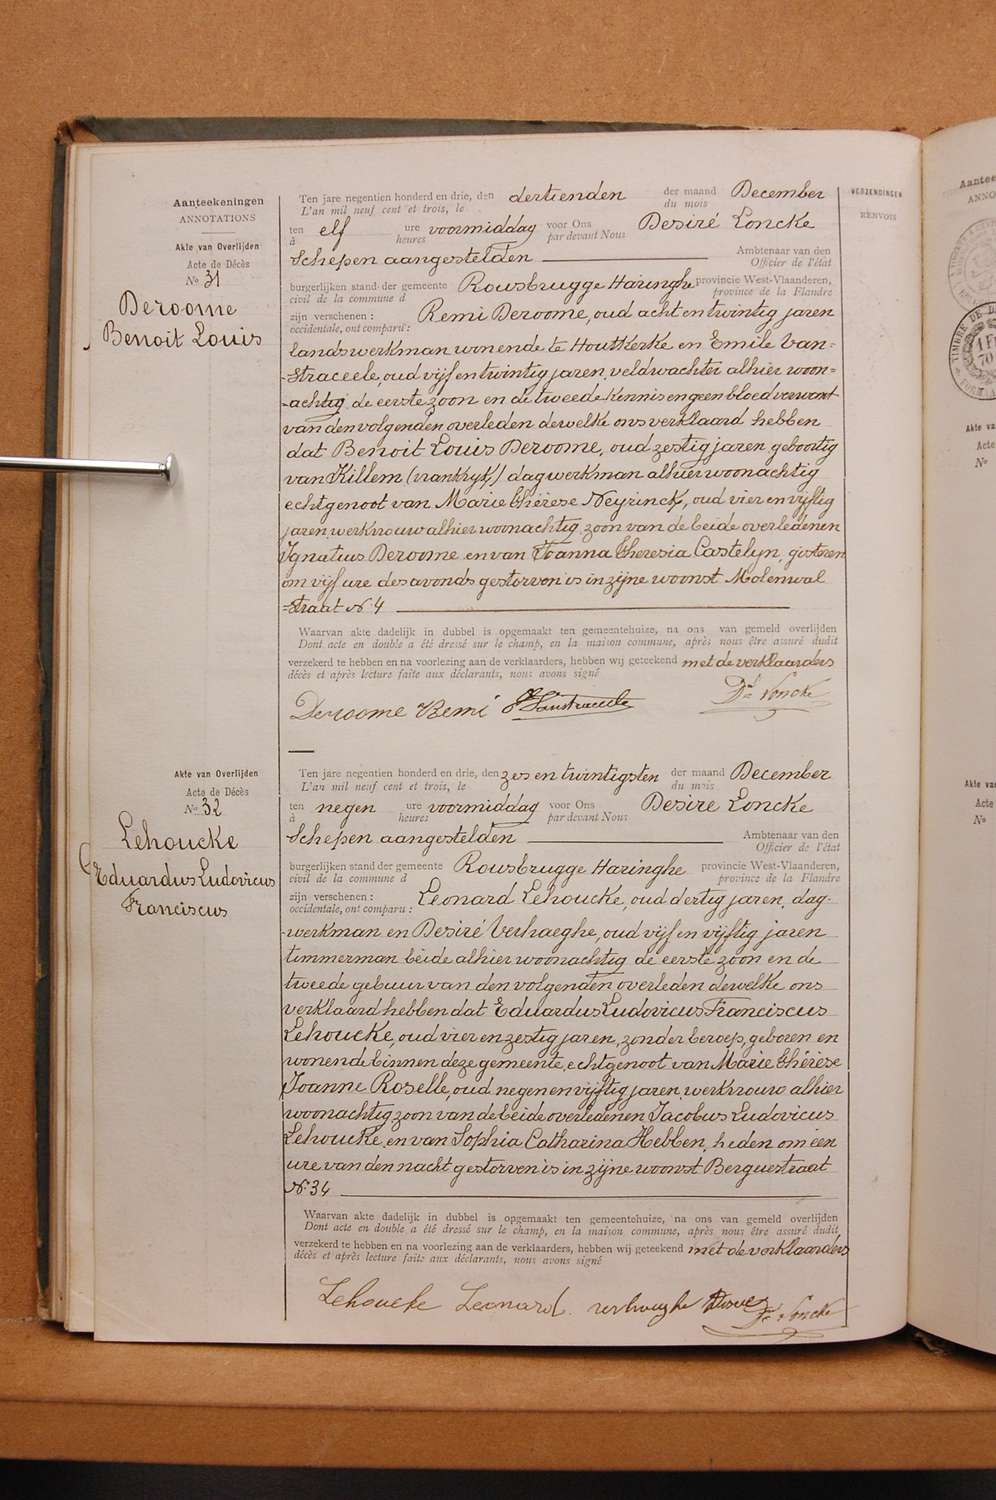 Aanteekeningen
ANNOTATIONS
Akte van Overlijden
Acte de Décès
No 31
Deroome
Benoit Louis
Ten jare negentien honderd en drie, den dertienden der maand December
L'an mil neuf cent et trois, le du mois
ten elf ure voormiddag voor Ons Desiré Loncke
à heures par devant Nous
Schepen aangestelden Ambtenaar van den
Officier de l'état
burgerlijken stand der gemeente Rousbrugge Haringhe provincie West-Vlaanderen,
civil de la commune d province de la Flandre
zijn verschenen : Remi Deroome, oud acht en twintig jaren
occidentale, ont comparu :
landswerkman wonende te Houtkerke en Emile Van=
=straceele, oud vijf en twintig jaren, veldwachter alhier woon=
=achtig de eerste zoon en de tweede kennis en geen bloedverwant
van den volgenden overleden dewelke ons verklaard hebben
dat Benoit Louis Deroome, oud zestig jaren geboortig
van Killem (vrankryk,) dagwerkman alhier woonachtig
echtgenoot van Marie Thérèse Neyrinck, oud vier en vijftig
jaren, werkvrouw alhier woonachtig, zoon van de beide overledenen
Ignatius Deroome en van Joanna Theresia Castelyn, gisteren
om vijf ure des avonds gestorven is in zijne woonst Molenwal
=straat No 4
Waarvan akte dadelijk in dubbel is opgemaakt ten gemeentehuize, na ons van gemeld overlijden
Dont acte en double a été dressé sur le champ, en la maison commune, après nous être assuré dudit
verzekerd te hebben en na voorlezing aan de verklaarders, hebben wij geteekend met de verklaarders
décès et après lecture faite aux déclarants, nous avons signé
Deroome Remi E. Vanstraceele Dé Loncke
Akte van Overlijden
Acte de Décès
No 32
Lehoucke
Eduardus Ludovicus
Franciscus
Ten jare negentien honderd en drie, den zes en twintigsten der maand December
L'an mil neuf cent et trois, le du mois
ten negen ure voormiddag voor Ons Desire Loncke
à heures par devant Nous
Schepen aangestelden Ambtenaar van den
Officier de l'état
burgerlijken stand der gemeente Rousbrugge Haringhe provincie West-Vlaanderen,
civil de la commune d province de la Flandre
zijn verschenen : Leonard Lehoucke, oud dertig jaren, dag-
occidentale, ont comparu :
-werkman en Desiré Verhaeghe, oud vijf en vijftig jaren
timmerman beide alhier woonachtig de eerste zoon en de
tweede gebuur van den volgenden overleden dewelke ons
verklaard hebben dat Eduardus Ludovicus Franciscus
Lehoucke, oud vier en zestig jaren, zonder beroep, geboren en
wonende binnen deze gemeente, echtgenoot van Marie Thérèse
Joanne Roselle, oud negen en vijftig jaren, werkvrouw alhier
woonachtig zoon van de beide overledenen Jacobus Ludovicus
Lehoucke, en van Sophia Catharina Hebben, heden om een
ure van den nacht gestorven is in zijne woonst Berguestraat
No 34
Waarvan akte dadelijk in dubbel is opgemaakt ten gemeentehuize, na ons van gemeld overlijden
Dont acte en double a été dressé sur le champ, en la maison commune, après nous être assuré dudit
verzekerd te hebben en na voorlezing aan de verklaarders, hebben wij geteekend met de verklaarders
décès et après lecture faite aux déclarants, nous avons signé
Lehoucke Leonard. verhaeghe Dé Loncke
VERZENDINGEN
RENVOIS